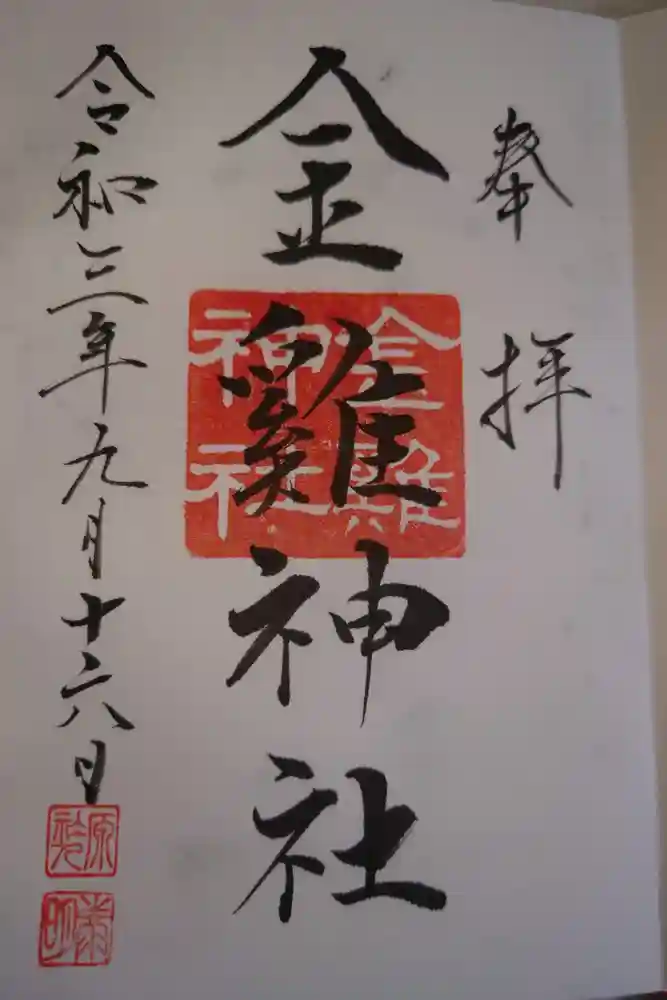 奉拝
金雞神社
金雞神社
令和三年九月十六日